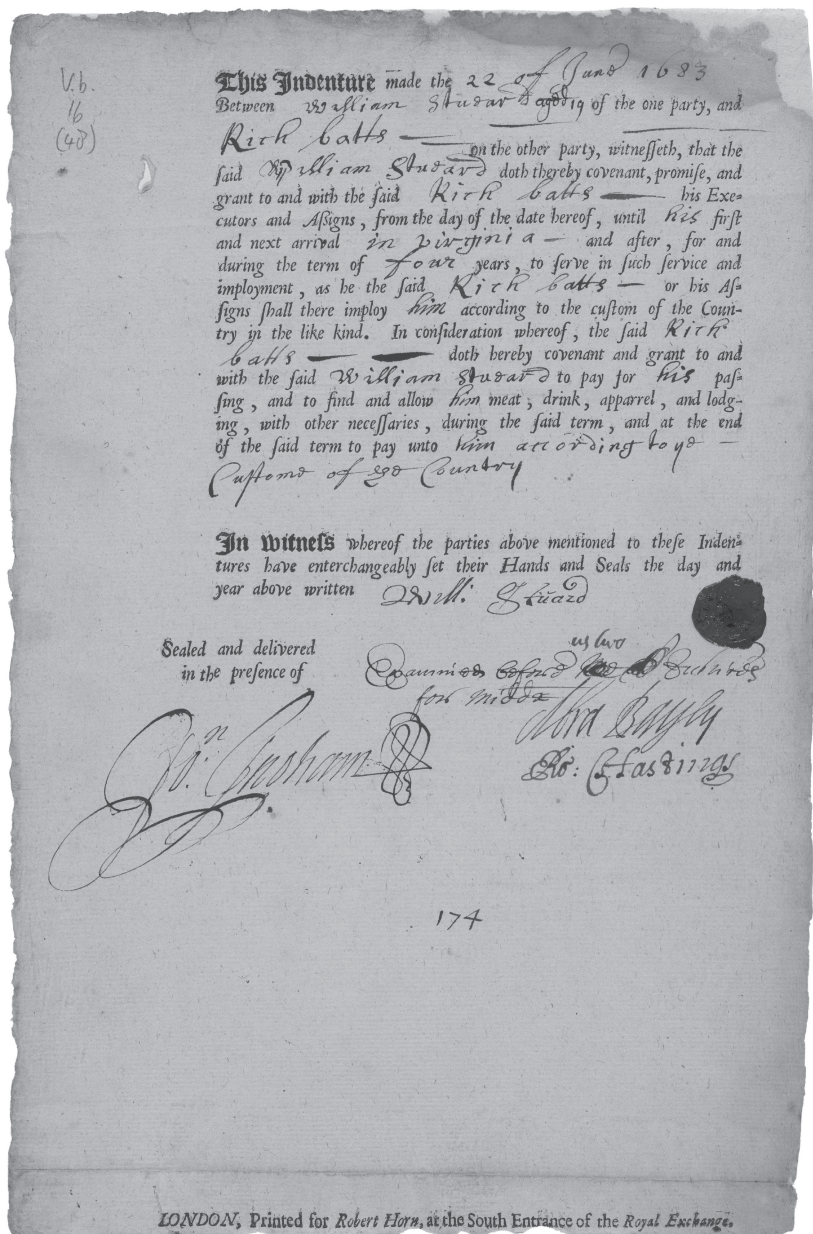 V.b.
16
(48)
This Indenture made the 22 of June 1683
Between William Studard aged 19 of the one party, and
Rick batts on the other party, witneſſeth, that the
ſaid William Studard doth thereby covenant, promiſe, and
grant to and with the ſaid Rick batts — his Exe=
cutors and Aſſigns, from the day of the date hereof, until his firſt
and next arrival in virginia — and after, for and
during the term of four years, to ſerve in ſuch ſervice and
imployment, as he the ſaid Rick batts — or his Aſ=
ſigns ſhall there imploy him according to the cuſtom of the Coun-
try in the like kind. In conſideration whereof, the ſaid Rick
batts — — doth hereby covenant and grant to and
with the ſaid William Studard to pay for his paſ=
ſing, and to find and allow him meat, drink, apparrel, and lodg-
ing, with other neceſſaries, during the ſaid term, and at the end
of the ſaid term to pay unto him according to ye —
Cuſtome of ye Country
In witneſs whereof the parties above mentioned to theſe Inden=
tures have enterchangeably ſet their Hands and Seals the day and
year above written Will: Stuard
Sealed and delivered
in the preſence of
us two
before
for Middx
Abra Bayly
Ro: Hastings
Jo.n
174
LONDON, Printed for Robert Horn, at the South Entrance of the Royal Exchange.